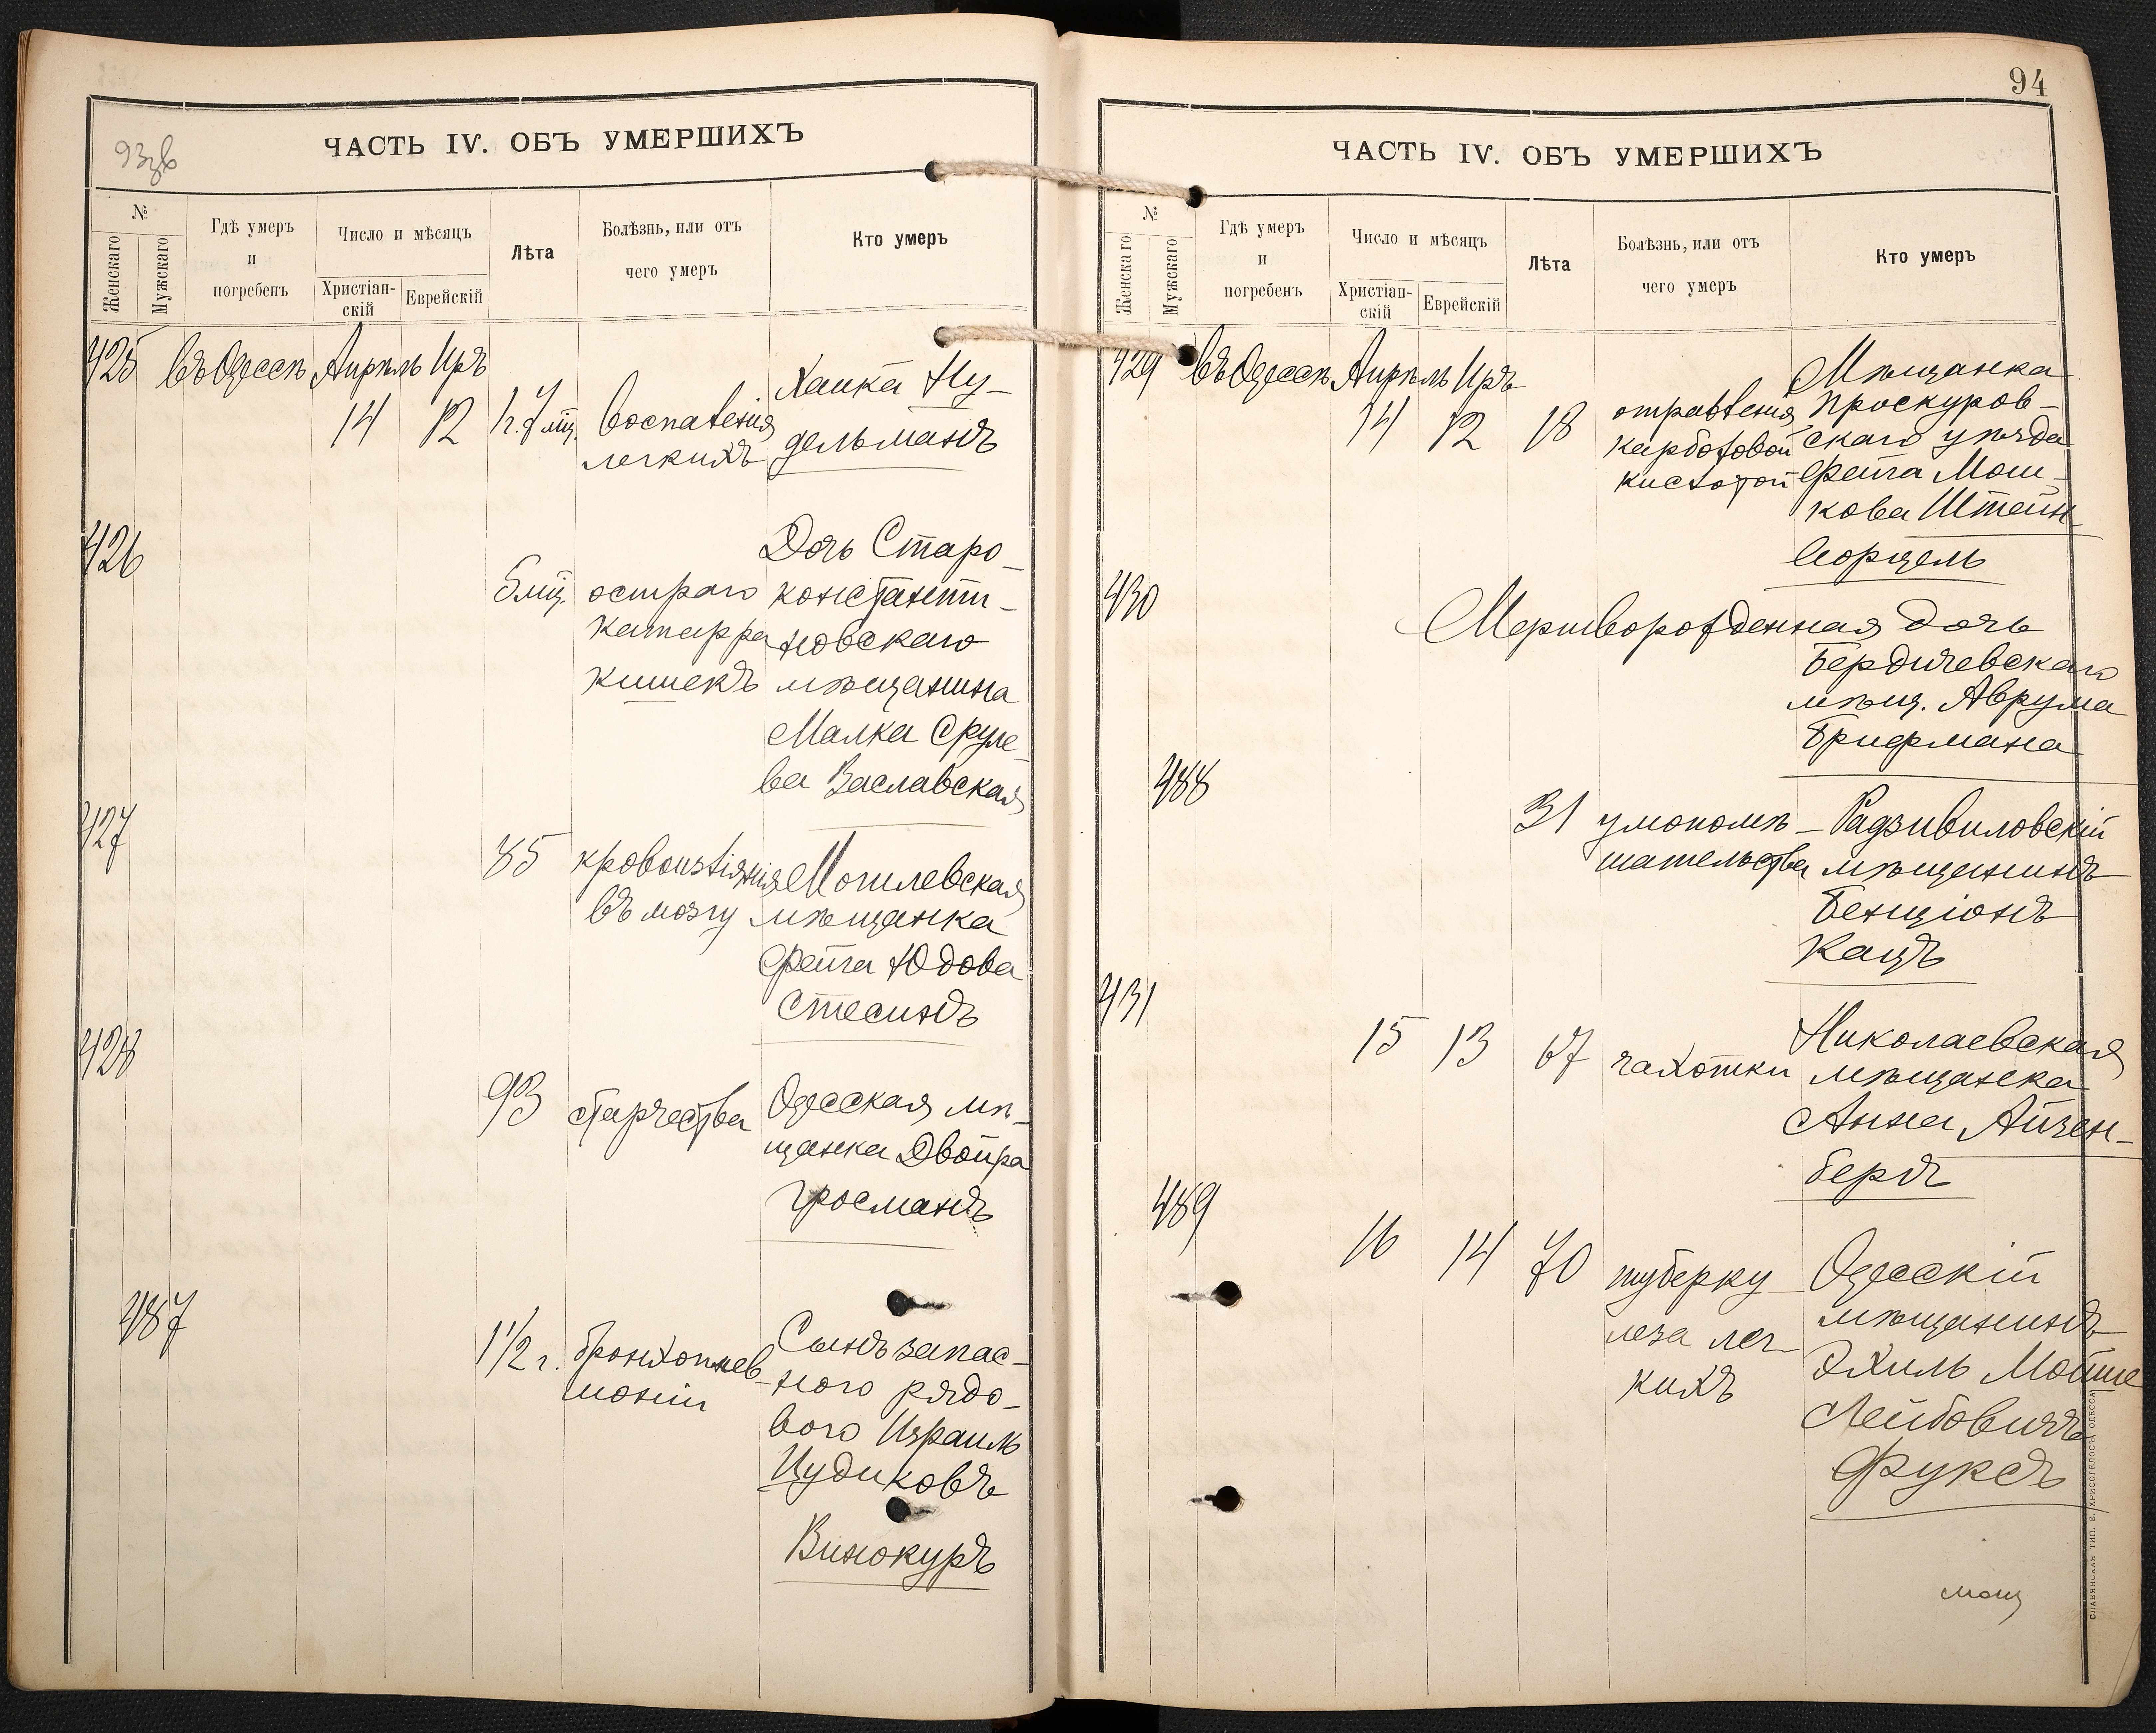 93об
ЧАСТЬ IV. ОБЪ УМЕРШИХЪ
№
Женскаго
Мужскаго
Гдѣ умеръ
и
погребенъ
Число и мѣсяцъ
Христіан-
скій
Еврейскій
Лѣта
Болѣзнь, или отъ
чего умеръ
Кто умеръ
425 въ Одессѣ Апрѣль Иръ
14 12 1 г. 7 мц. воспаленія легкихъ
Хаика Ну-
дельманъ
426
5 мц. остраго
катарра
кишекъ
Дочь Старо-
константи-
новскаго
мѣщанина
Малка Сруле-
ва Заславская
427
85 кровоизліянія
въ мозгу
Могилевская
мѣщанка
Фейга Юдова
Стесинъ
428
93 старчества
Одесская мѣ-
щанка Двойра
Гросманъ
487
1 1/2 г. бронхопнев-
моніи
Сынъ запас-
ного рядо-
вого Израиль
Цудиковъ
Винокуръ
94
ЧАСТЬ IV. ОБЪ УМЕРШИХЪ
№
Женскаго
Мужскаго
Гдѣ умеръ
и
погребенъ
Число и мѣсяцъ
Христіан-
скій
Еврейскій
Лѣта
Болѣзнь, или отъ
чего умеръ
Кто умеръ
429 въ Одессѣ Апрѣль Иръ
14 12 18 отравленія
карболовой
кислотой
Мѣщанка
Проскуров-
скаго уѣзда
Фейга Мош-
кова Штейн-
ворцель
430
Мертворожденная дочь
Бердичевскаго
мѣщ. Аврума
Брифмана
488
31 умопомѣ-
шательства
Радзивиловскій
мѣщанинъ
Бенціонъ
Кацъ
431
15 13 67 чахотки
Николаевская
мѣщанка
Анна Айзен-
бергъ
489
16 14 70 туберку-
леза лег-
кихъ
Одесскій
мѣщанинъ
Эхиль Мойше
Лейбовичъ
Фуксъ
СЛАВЯНСКАЯ ТИП. Е. ХРИСОГЕЛОСЪ, ОДЕССА